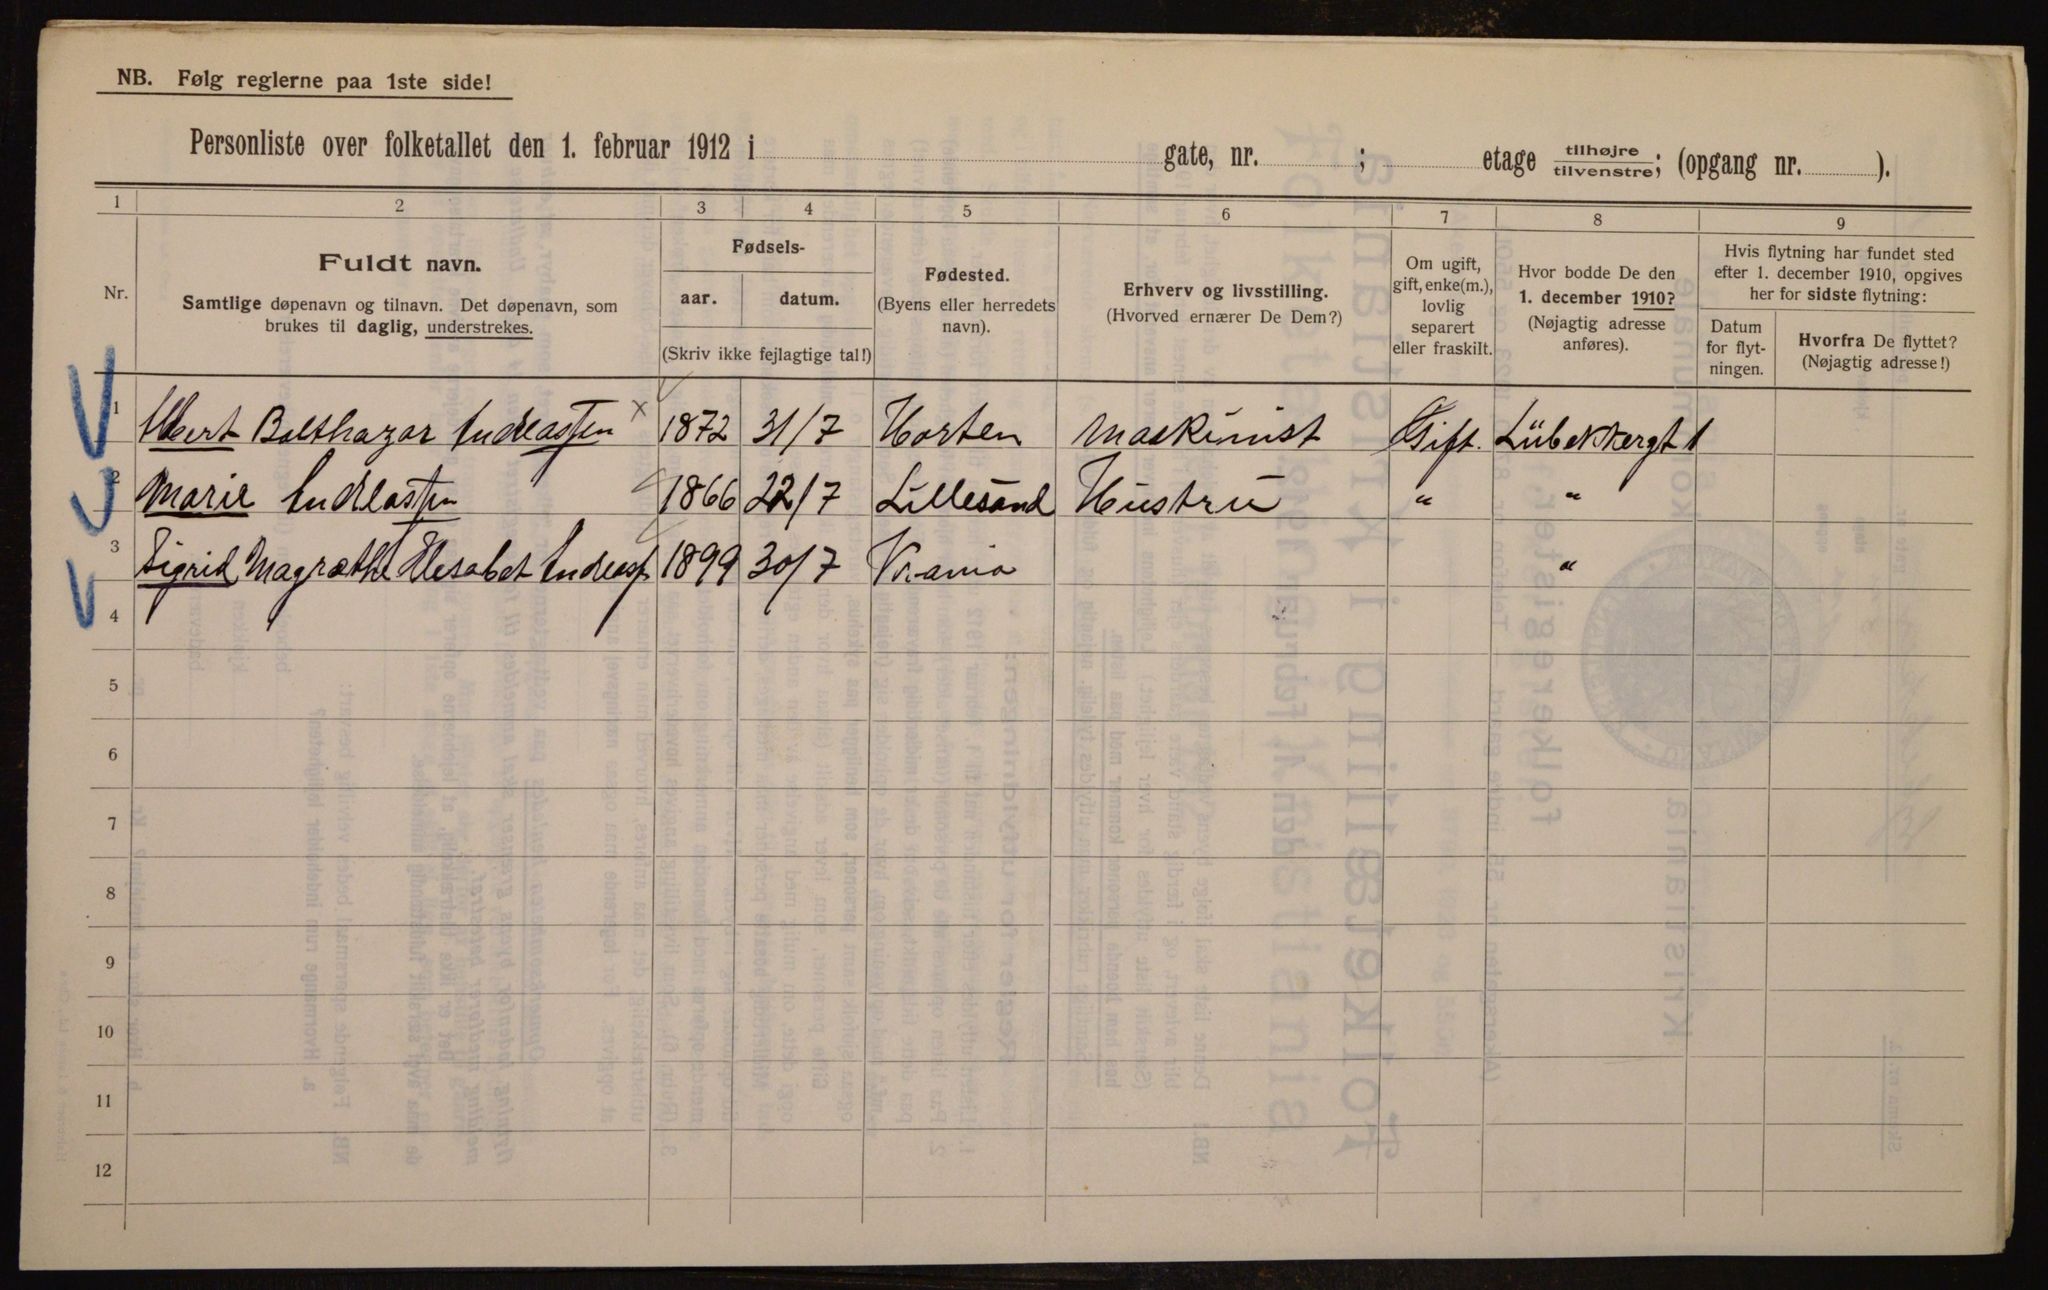 NB. Følg reglerne paa 1ste side!
Personliste over folketallet den 1. februar 1912 i gate, nr. ; etage tilhøjre/tilvenstre; (opgang nr. ).
1 2 3 4 5 6 7 8 9
Nr.
Fuldt navn.
Samtlige døpenavn og tilnavn. Det døpenavn, som
brukes til daglig, understrekes.
Fødsels-
aar. datum.
(Skriv ikke fejlagtige tal!)
Fødested.
(Byens eller herredets
navn).
Erhverv og livsstilling.
(Hvorved ernærer De Dem?)
Om ugift,
gift, enke(m.),
lovlig
separert
eller fraskilt.
Hvor bodde De den
1. december 1910?
(Nøjagtig adresse
anføres).
Hvis flytning har fundet sted
efter 1. december 1910, opgives
her for sidste flytning:
Datum
for flyt-
ningen.
Hvorfra De flyttet?
(Nøjagtig adresse!)
1 Albert Balthazar Andreassen x 1872 31/7 Horten Maskinist Gift. Lübekkergt 1
2 Marie Andreassen 1866 22/7 Lillesand Hustru " "
3 Sigrid Magrethe Elesabet Andreas 1899 30/7 Kr.ania "
4
5
6
7
8
9
10
11
12